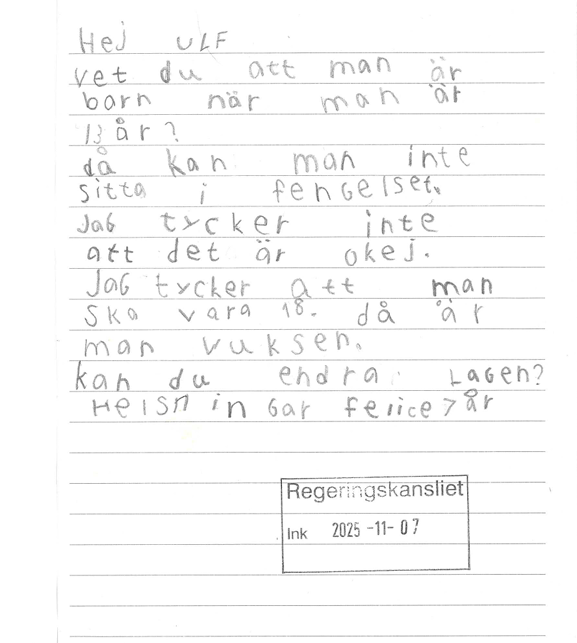 Hej ULF
vet du att man är
barn när man är
13 år?
då kan man inte
sitta i fengelset.
Jag tycker inte
att det är okej.
Jag tycker att man
Ska vara 18. då är
man vuksen.
kan du endra Lagen?
Helsningar felice 7 år
Regeringskansliet
Ink 2025-11-07